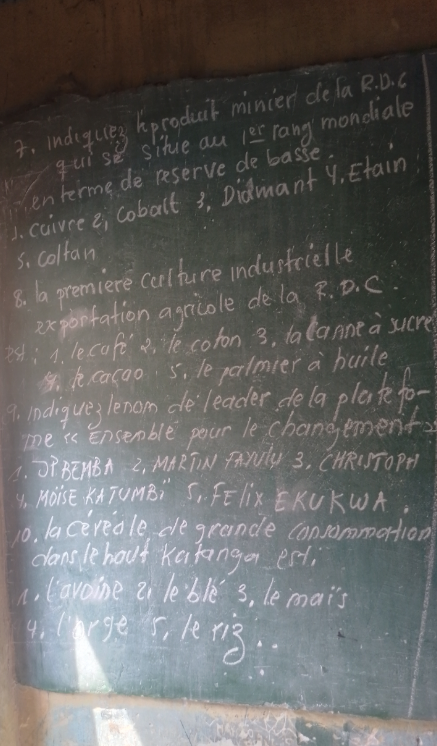 7. indiquez le produit minier de la R.D.C
qui se situe au 1er rang mondiale
en terme de reserve de basse.
1. Cuivre 2, Cobalt 3, Diamant 4, Etain
5. Coltan
8. la premiere Culture industrielle
exportation agricole de la R.D.C.
est : 1, le café 2, le coton 3. la canne à sucre
4. le cacao 5. le palmier à huile
9. indiquez le nom de leader de la plate fo-
me « Ensemble pour le changement »
1. JP BEMBA 2, MARTIN FAYULU 3. CHRISTOPH
4. MOÏSE KATUMBI 5, FELIX EKUKWA.
10. la céréale de grande consommation
dans le haut Katanga est;
1. l'avoine 2, le blé 3, le maïs
4. l'orge 5, le riz..